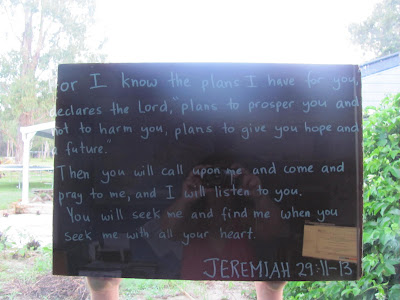 or I know the plans I have for you,
eclares the Lord, "plans to prosper you and
ot to harm you, plans to give you hope and
a future."
Then you will call upon me and come and
pray to me, and I will listen to you.
You will seek me and find me when you
seek me with all your heart.
JEREMIAH 29:11-13